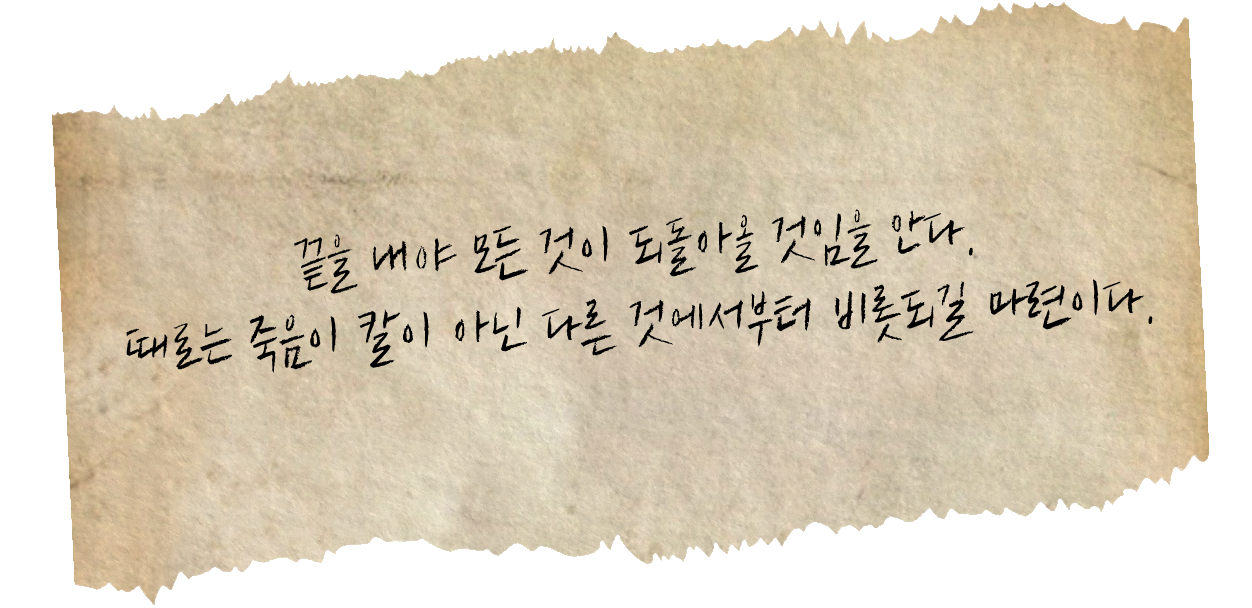 끝을 내야 모든 것이 되돌아올 것임을 안다.
때로는 죽음이 칼이 아닌 다른 것에서부터 비롯되길 마련이다.